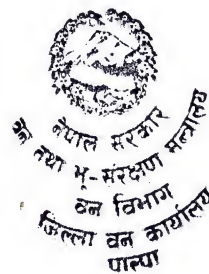 नेपाल सरकार
वन तथा भू-संरक्षण मन्त्रालय
वन विभाग
जिल्ला वन कार्यालय
पाल्पा